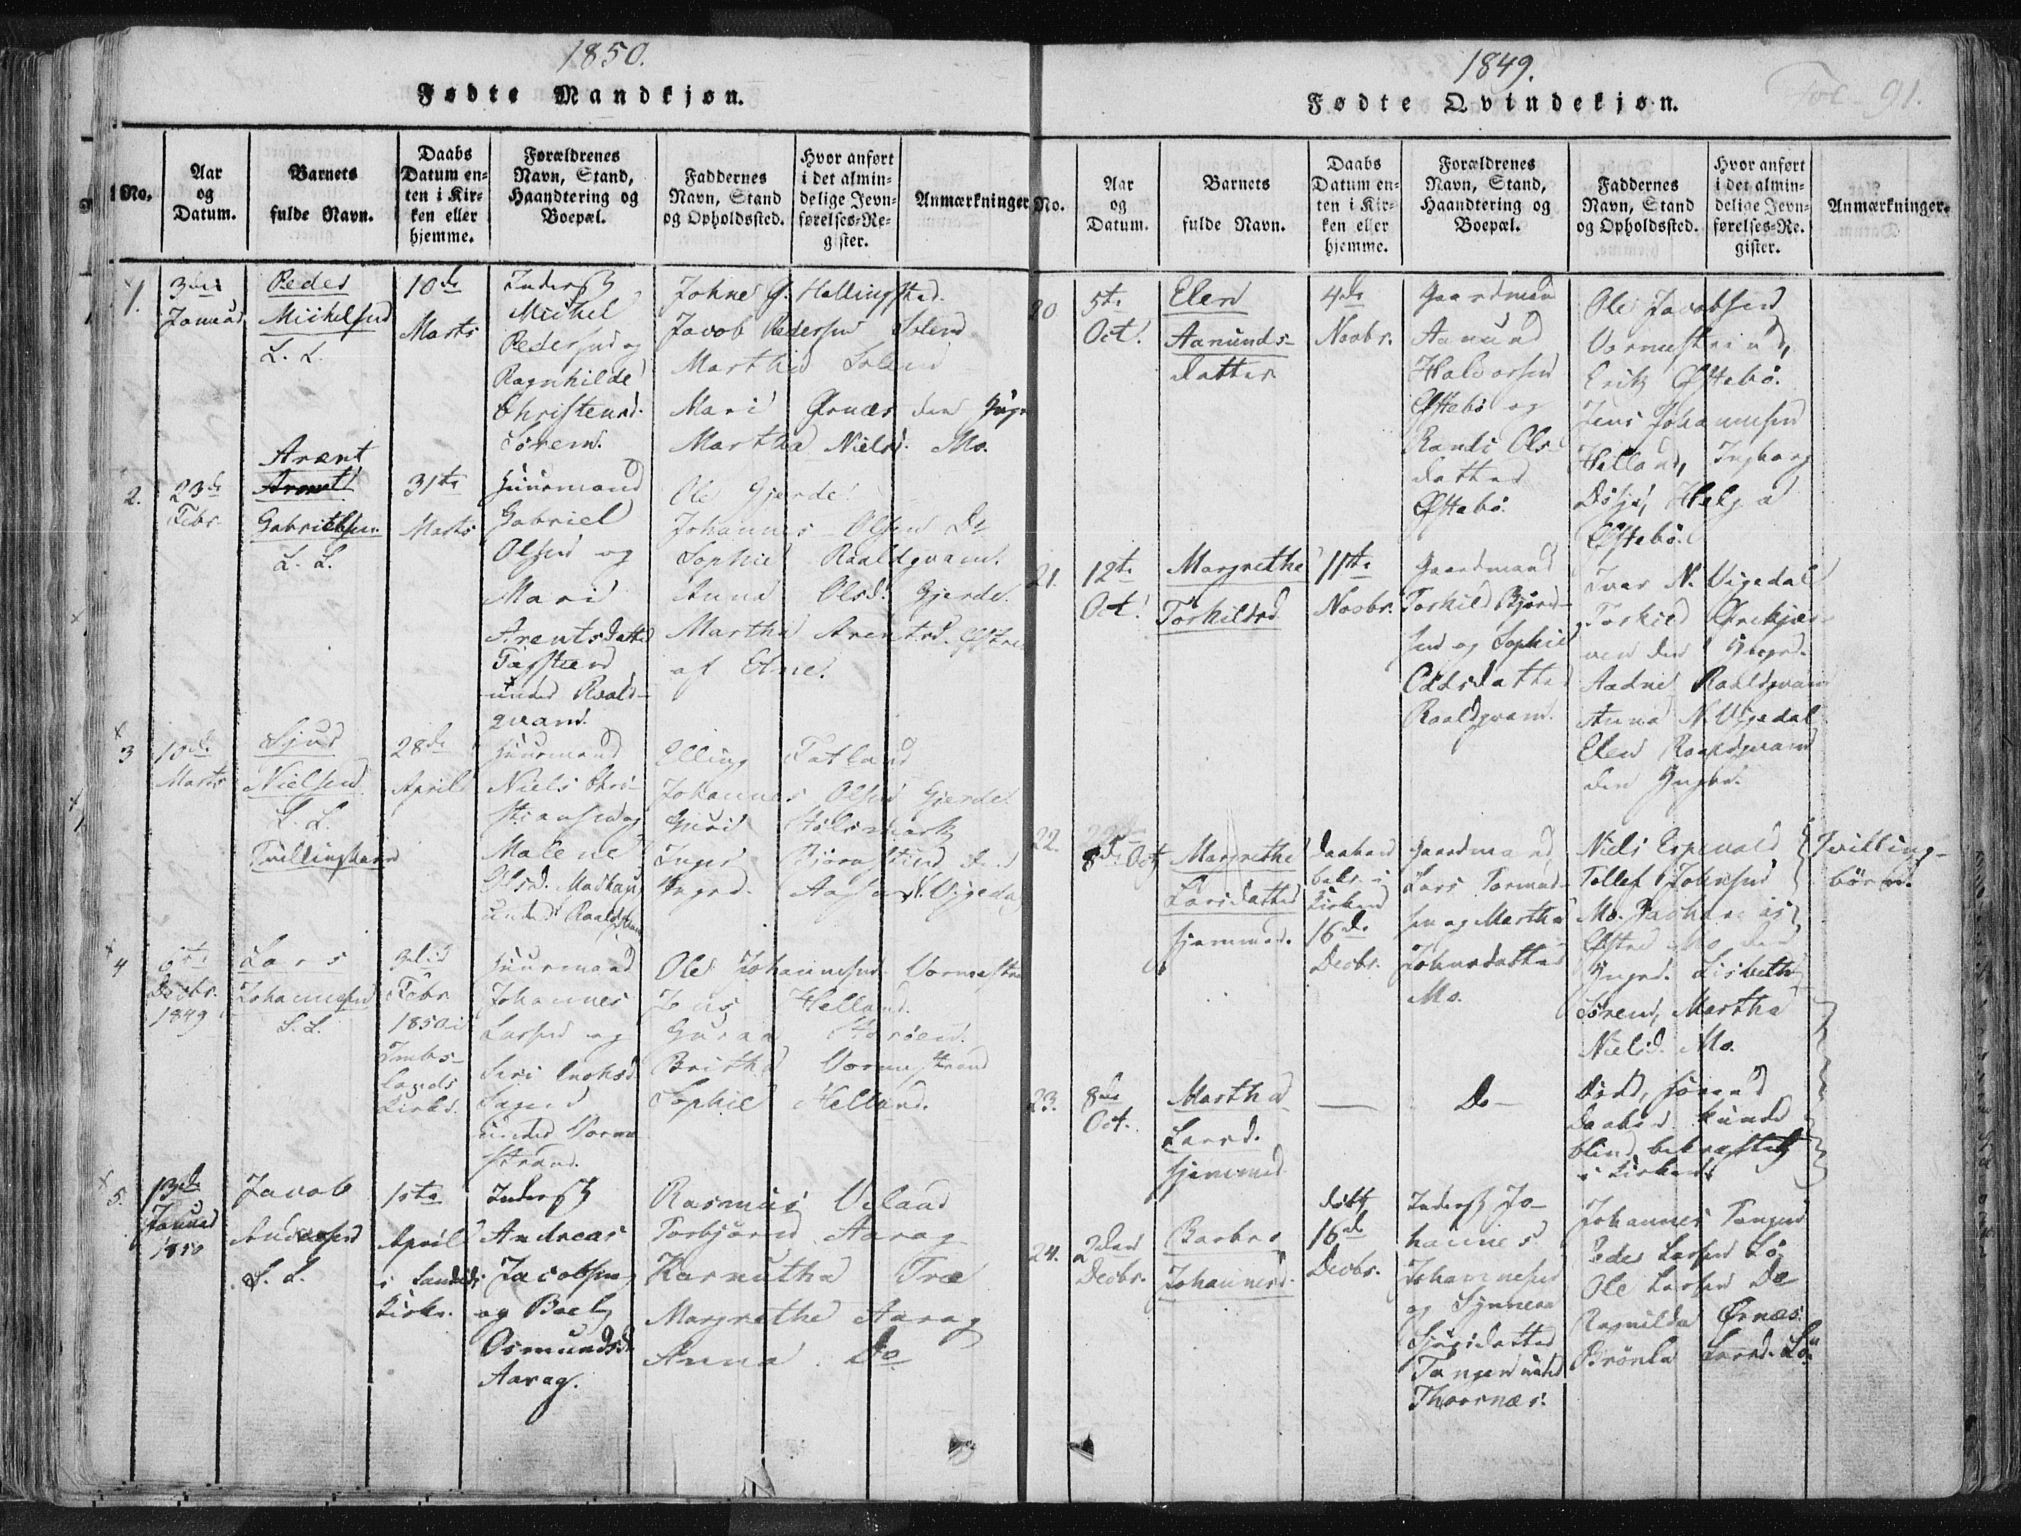 1850.
Fødte Mandkjøn.
No.
Aar
og
Datum.
Barnets
fulde Navn.
Daabs
Datum en-
ten i Kir-
ken eller
hjemme.
Forældrenes
Navn, Stand,
Haandtering og
Boepæl.
Faddernes
Navn, Stand
og Opholdssted.
Hvor anført
i det almin-
delige Jevn-
førelses-Re-
gister.
Anmærkninger
1.
3die
Januar
Peder
Michelsen
L. L.
10de
Marts
Inderst
Michel
Pedersen og
Ragnhilde
Christensd.
Sørem.
Johne Hellingstad.
Jacob Pedersen
Martha
Mari Ørnæs den Yngr
Martha Nielsd. Mo.
2.
23de
Febr.
Arent
Gabrielsen
L. L.
31te
Marts
Huusmand
Gabriel
Olsen og
Mari
Arentsdatter
under Roald-
qvam.
Ole Gjerde.
Johannes Olsen Do
Sophie Roaldqvam.
Anna Olsd. Gjerde.
Martha Arentsd.
af Etne.
3
10de
Marts
Sjur
Nielsen
L. L.
Tvillingbarn
28de
April
Huusmand
Niels Chri-
stiansen og
Malene
Olsd.
under Roaldqvam
Elling Fatland
Johannes Olsen Gjerde.
Guri
Inger Bjørn den
Yngrd.
4
6te
Decbr.
1849
Lars
Johannesen
L. L.
Febr
1850 i
Imbs-
lands
Kirke.
Huusmand
Johannes
Larsen og
Siri
under Vorme-
strand.
Ole Johannesen Vormestra
Jens Helland.
Britha Vormestrand
Sophie Helland.
5.
13de
Januar
1850
Jacob
Andersen
L. L.
1ste
April
i Sandeids
Kirke.
Inderst
Andreas
Jacobsen
og Boel
Osmundsd.
Aarag.
Rasmus Veland
Torbjørn Aarag
Karnutha Træ
Margrethe Aarag
Anna Do
1849.
Fødte Qvindekjøn.
Fol. 91.
No.
Aar
og
Datum.
Barnets
fulde Navn.
Daabs
Datum en-
ten i Kir-
ken eller
hjemme.
Forældrenes
Navn, Stand,
Haandtering og
Boepæl.
Faddernes
Navn, Stand
og Opholdssted.
Hvor anført
i det almin-
delige Jevn-
førelses-Re-
gister.
Anmærkninger.
20
5te
Oct.
Elen
Aamunds-
datter
4de
Novbr.
Gaardmand
Aamund
Halvorsen
Østebø og
Randi Ols
datter
Østebø.
Ole Jacobsen
Vormestrand,
Erik Østebø.
Jens Johannesen
Helland, Ingborg
Helga
Østebø.
21.
12te
Oct.
Margrethe
Torkildsd
11te
Novbr.
Gaardmand
Torkild Bjørn-
sen og Sophie
Oddsdatter
Roaldqvam.
Ivar N. Vigedal
Torkild
den Yngrd.
Aadne Roaldqvam
Anna N. Vigedal
Elen Roaldqvam
den Yngrd.
22.
8de Oct
Margrethe
Larsdatter
hjemmed.
Daaben
bekr. i
Kirken
16de
Decbr.
Gaardmand
Lars Tormod-
sen og Martha
Johnsdatter
Mo.
Niels Espevold
Tollef Johnsen
Mo. Zacharias
Mo den
Yngrd. Lisbeth
Sørem, Martha
Nielsd. Mo.
Tvilling-
børn.
23.
8de
Oct.
Martha
Larsd.
hjemmed
—
Do —
Død, førend
Daaben kunde
blive bekræftet
i Kirken.
24.
2den
Decbr.
Barbro
Johannesd.
Døbt
16de
Decbr.
Inderst Jo-
hannes
Johannesen
og Synneva
Sjursdatter
Tangen under
Thoernæs.
Johannes Tangen
Peder Larsen Lø
Ole Larsen Do
Ragnilda Ørnæs.
Brønla Larsd. Lø.